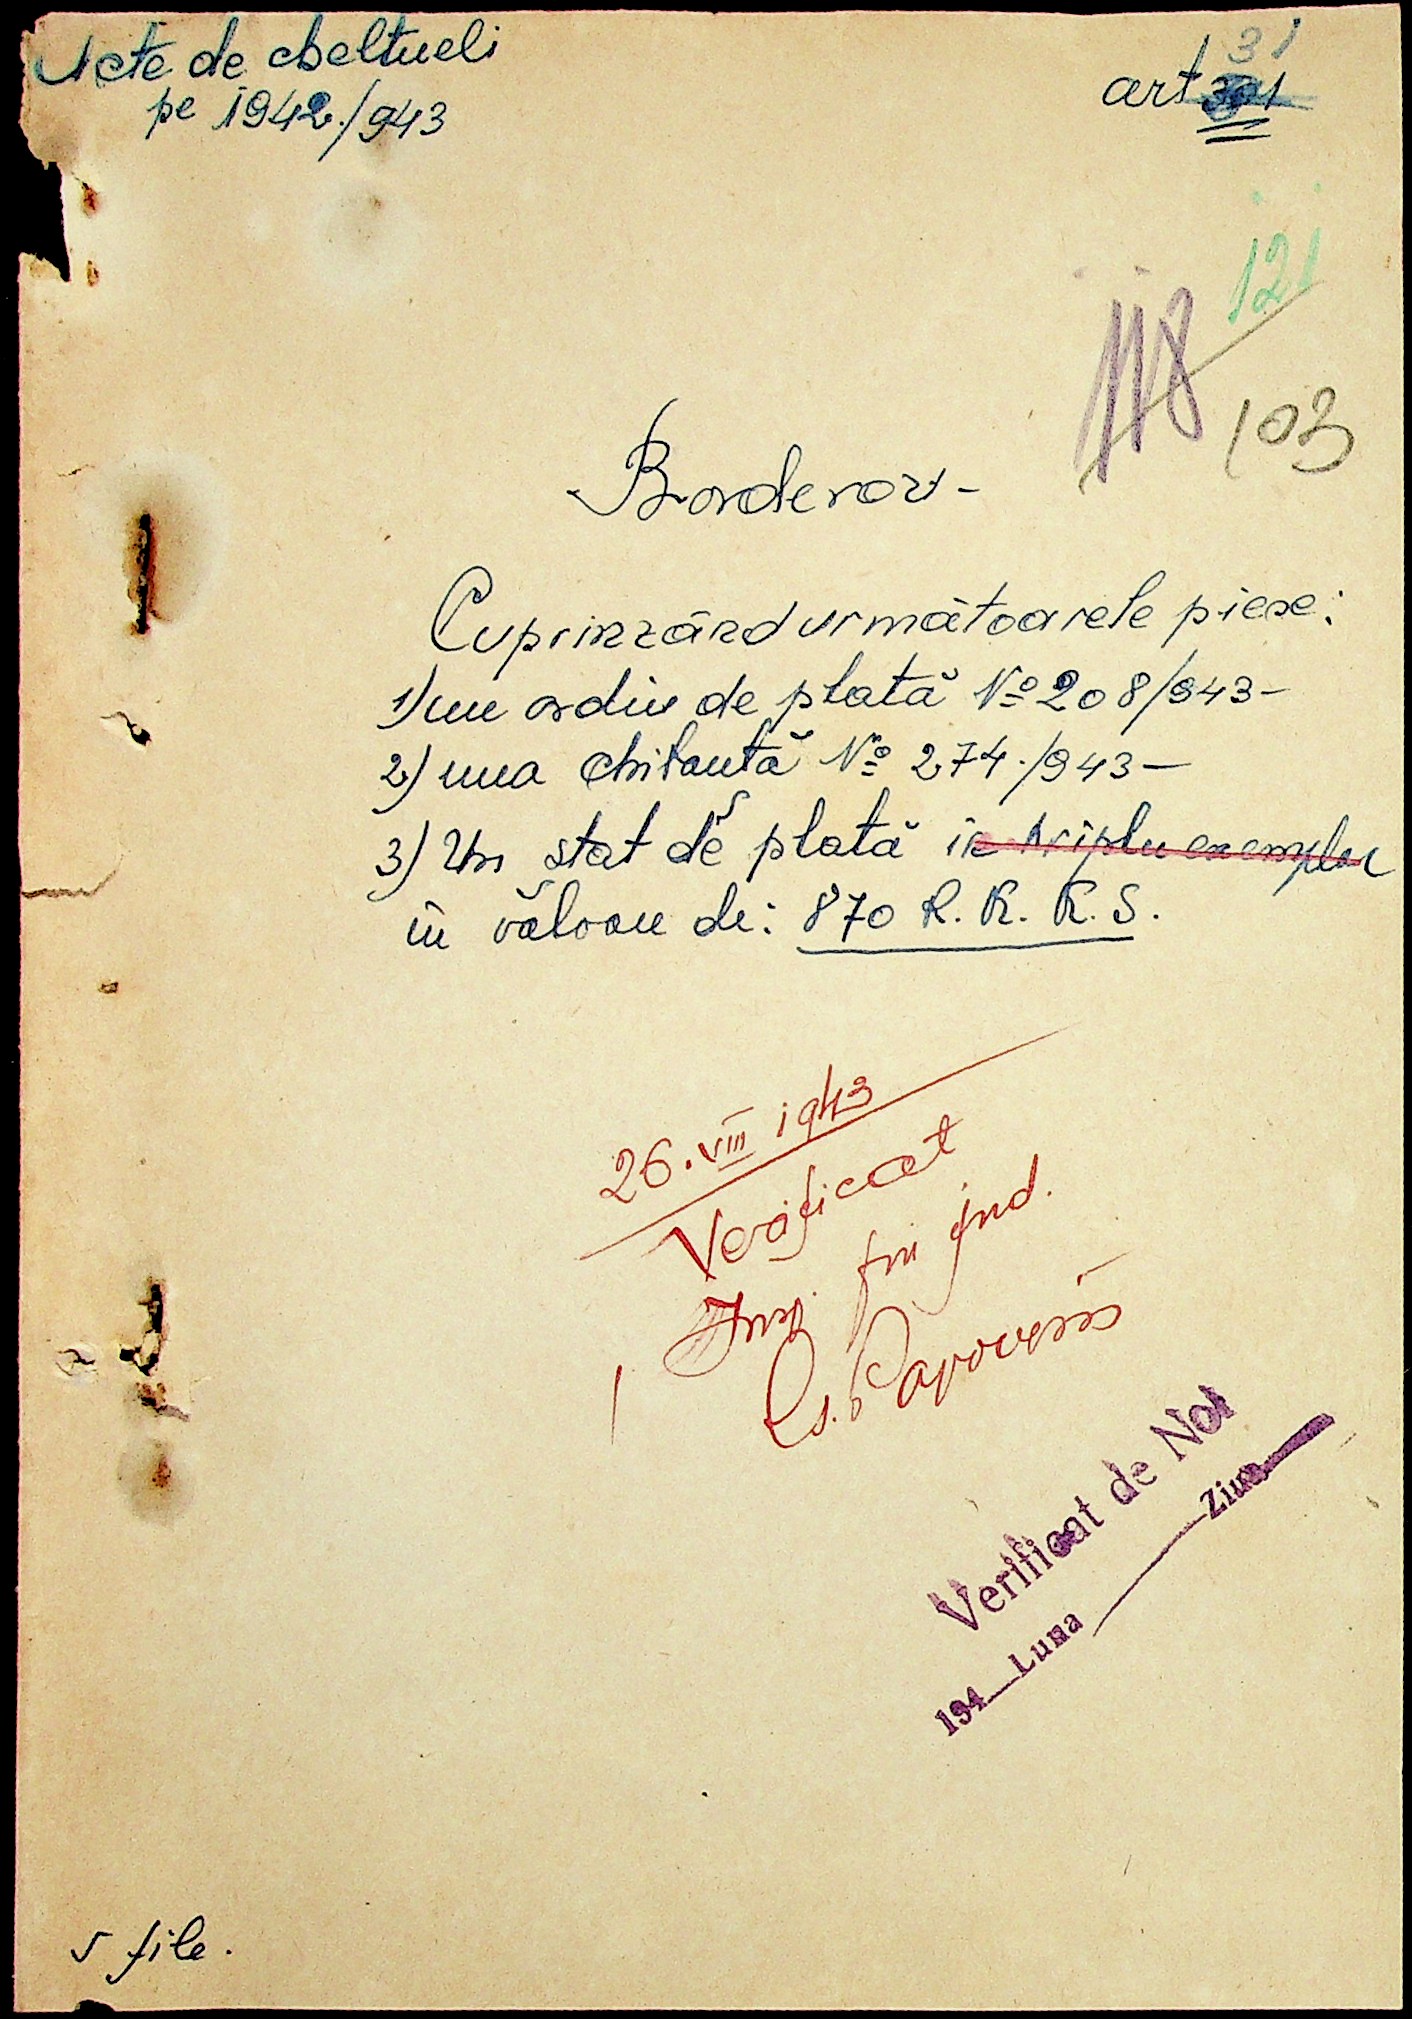 Acte de cheltueli
pe 1942./943
31
art 301
121
118
103
Borderou-
Cuprinzând următoarele piese:
1) un ordin de plată № 208/943-
2) una chitantă № 274./943-
3) Un stat de plată in triplu exemplar
în văloare de: 870 R. K. K. S.
26. VIII 1943
Verificat
Insp. fin jud.
Verificat de Noi
194_ Luna ___ Ziua
5 file.